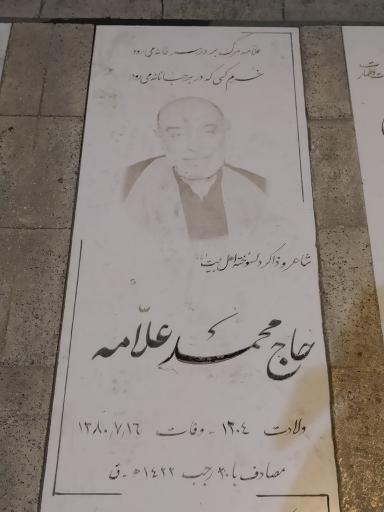 علامه مرگ بر در سر خانه می رود
خرم کسی که در بر جانانه می رود
شاعر و ذاکر دلسوخته اهل بیت (ع)
حاج محمد علّامه
ولادت ۱۳۰۴ - وفات ۱۳۸۰/۷/۱۶
مصادف با ۲۰ رجب ۱۴۲۲ ه-ق